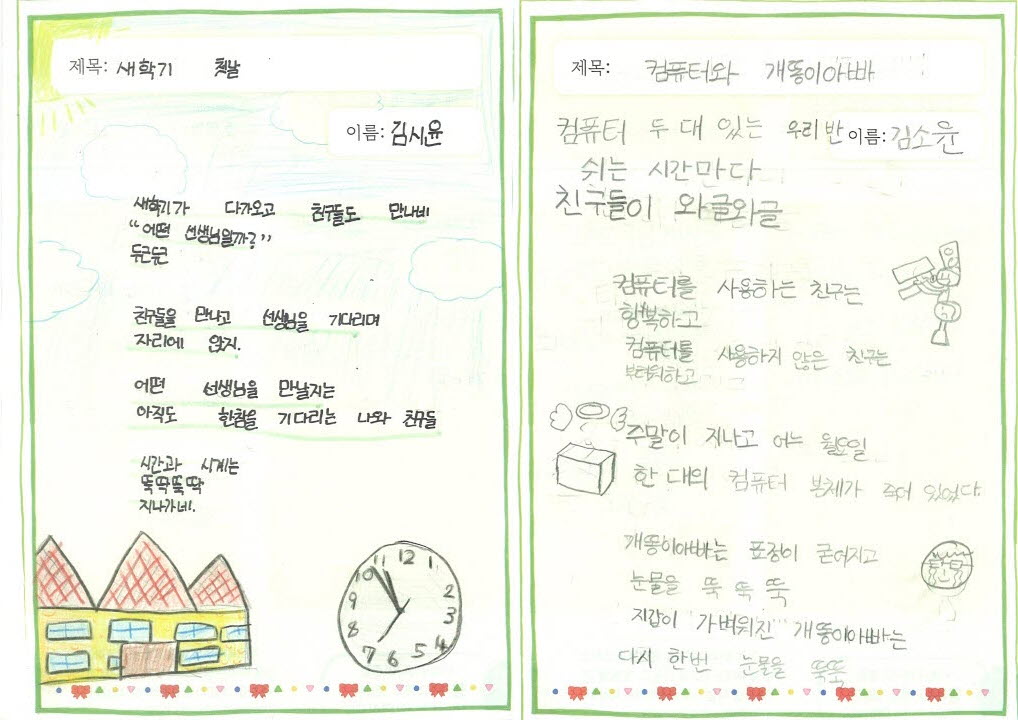 제목: 새학기 첫날
이름: 김시윤
새학기가 다가오고 친구들도 만나네
"어떤 선생님일까?"
두근두근
친구들을 만나고 선생님을 기다리며
자리에 앉지.
어떤 선생님을 만날지는
아직도 한참을 기다리는 나와 친구들
시간과 시계는
뚝딱뚝딱
지나가네.
11 12 1
10 2
9 3
8 4
7 6 5
제목: 컴퓨터와 개똥이아빠
이름: 김소윤
컴퓨터 두 대 있는 우리반
쉬는 시간마다
친구들이 와글와글
컴퓨터를 사용하는 친구는
행복하고
컴퓨터를 사용하지 않은 친구는
부러워하고
주말이 지나고 어느 월요일
한 대의 컴퓨터 본체가 죽어 있었다.
개똥이아빠는 표정이 굳어지고
눈물을 뚝 뚝 뚝
지갑이 '가벼워진' 개똥이아빠는
다시 한번 눈물을 뚝뚝